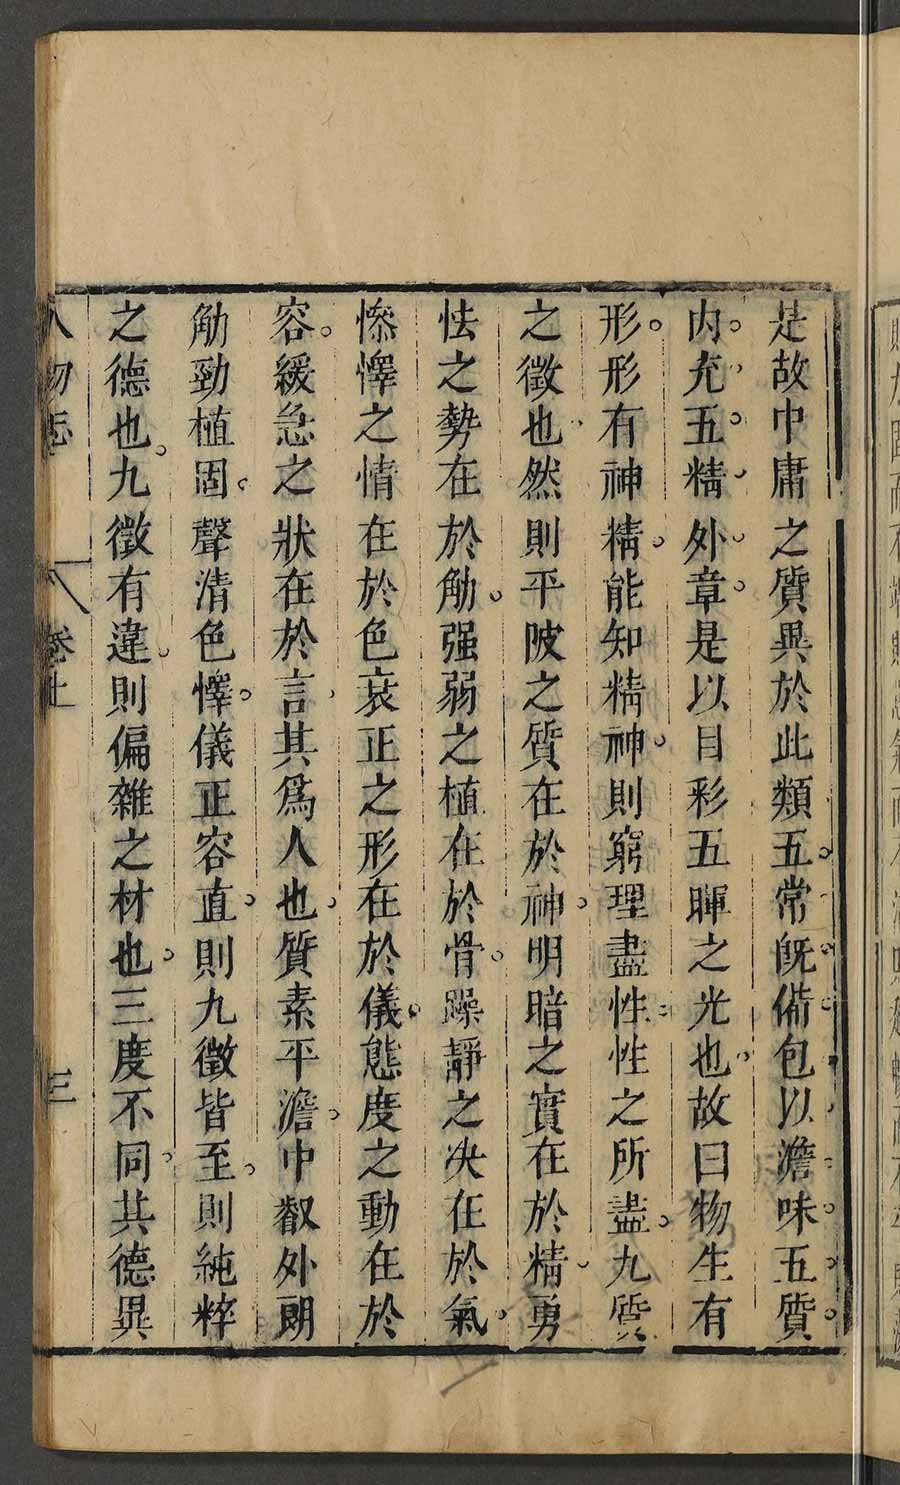 是故中庸之質異於此類五常既備包以澹味五質
内充五精外章是以目彩五暉之光也故曰物生有
形形有神精能知精神則窮理盡性性之所盡九質
之徵也然則平陂之質在於神明暗之實在於精勇
怯之勢在於觔强弱之植在於骨躁靜之决在於氣
慘懌之情在於色衰正之形在於儀態度之動在於
容緩急之狀在於言其爲人也質素平澹中叡外朗
觔勁植固聲清色懌儀正容直則九徵皆至則純粹
之德也九徵有違則偏雜之材也三度不同其德異
人物志
卷上
三